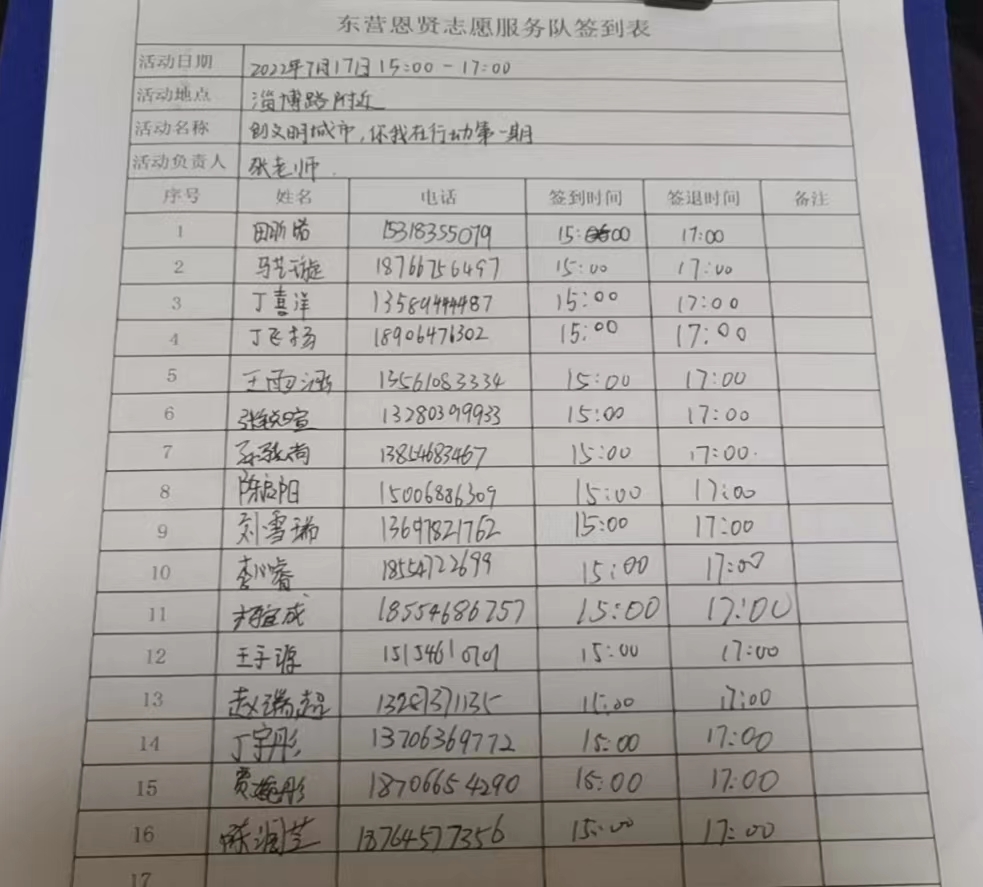 东营恩贤志愿服务队签到表
活动日期 2022年7月17日 15:00 - 17:00
活动地点 淄博路附近
活动名称 创文明城市,你我在行动第一期
活动负责人 张老师.
序号 姓名 电话 签到时间 签退时间 备注
1 田昕诺 15318355079 15:00 17:00
2 马艺璇 18766756497 15:00 17:00
3 丁喜洋 13589444487 15:00 17:00
4 丁飞扬 18906476302 15:00 17:00
5 王雨涵 13561083334 15:00 17:00
6 15:00 17:00
7 13854683467 15:00 17:00.
8 陈启阳 15006886309 15:00 17:00
9 刘雪瑞 13697821762 15:00 17:00
10 18554722699 15:00 17:00
11 18554686757 15:00 17:00
12 王子源 15154610701 15:00 17:00
13 赵瑞超 13287371135 15:00 17:00
14 丁宇彤 13706369772 15:00 17:00
15 18706654290 15:00 17:00
16 陈润芝 18764577356 15:00 17:00
17